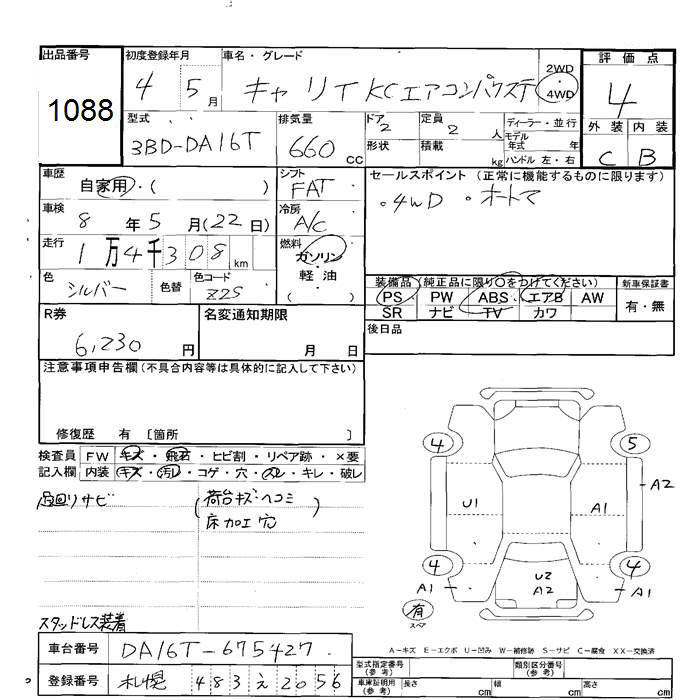 出品番号 初度登録年月 車名・グレード 評価点
1088 4 5月 キャリイ KCエアコンパワステ 2WD 4WD 4
型式 排気量 ドア 2 定員 2 人 ディーラー・並行 外装 内装
3BD-DA16T 660 cc 形状 積載 kg モデル年式 年 C B
ハンドル 左・右
車歴 シフト セールスポイント (正常に機能するものに限ります)
自家用・( ) FAT ・4WD ・オートマ
車検 8年5月(22日) 冷房 A/C
走行 1万4千308km 燃料 ガソリン・軽油
( )
色 シルバー 色替 色コード Z2S
装備品(純正品に限り○をつけてください) 新車保証書
PS PW ABS エアB AW 有・無
SR ナビ TV カワ
R券 名変通知期限 後日品
6,230円 月 日
注意事項申告欄(不具合内容等は具体的に記入して下さい)
修復歴 有 〔箇所 〕
検査員 FW キズ・飛石・ヒビ割・リペア跡・×要
記入欄 内装 キズ・汚レ・コゲ・穴・スレ・キレ・破レ
足回リサビ (荷台キズヘコミ
床カエ穴)
4 5
A2
U1 A1
4 4
U2
A1 A2 A1
有
スペア
スタッドレス装着
A-キズ E-エクボ U-凹み W-補修跡 S-サビ C-腐食 XX-交換済
車台番号 DA16T-675427
登録番号 札幌 483 え 2056
型式指定番号(参考) 類別区分番号(参考)
車庫証明用(参考) 長さ cm 幅 cm 高さ cm